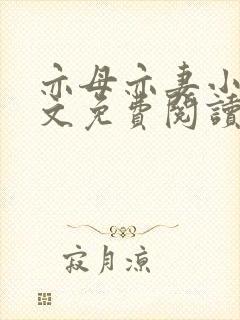 亦母亦妻小
文免費閱讀
寂月凉